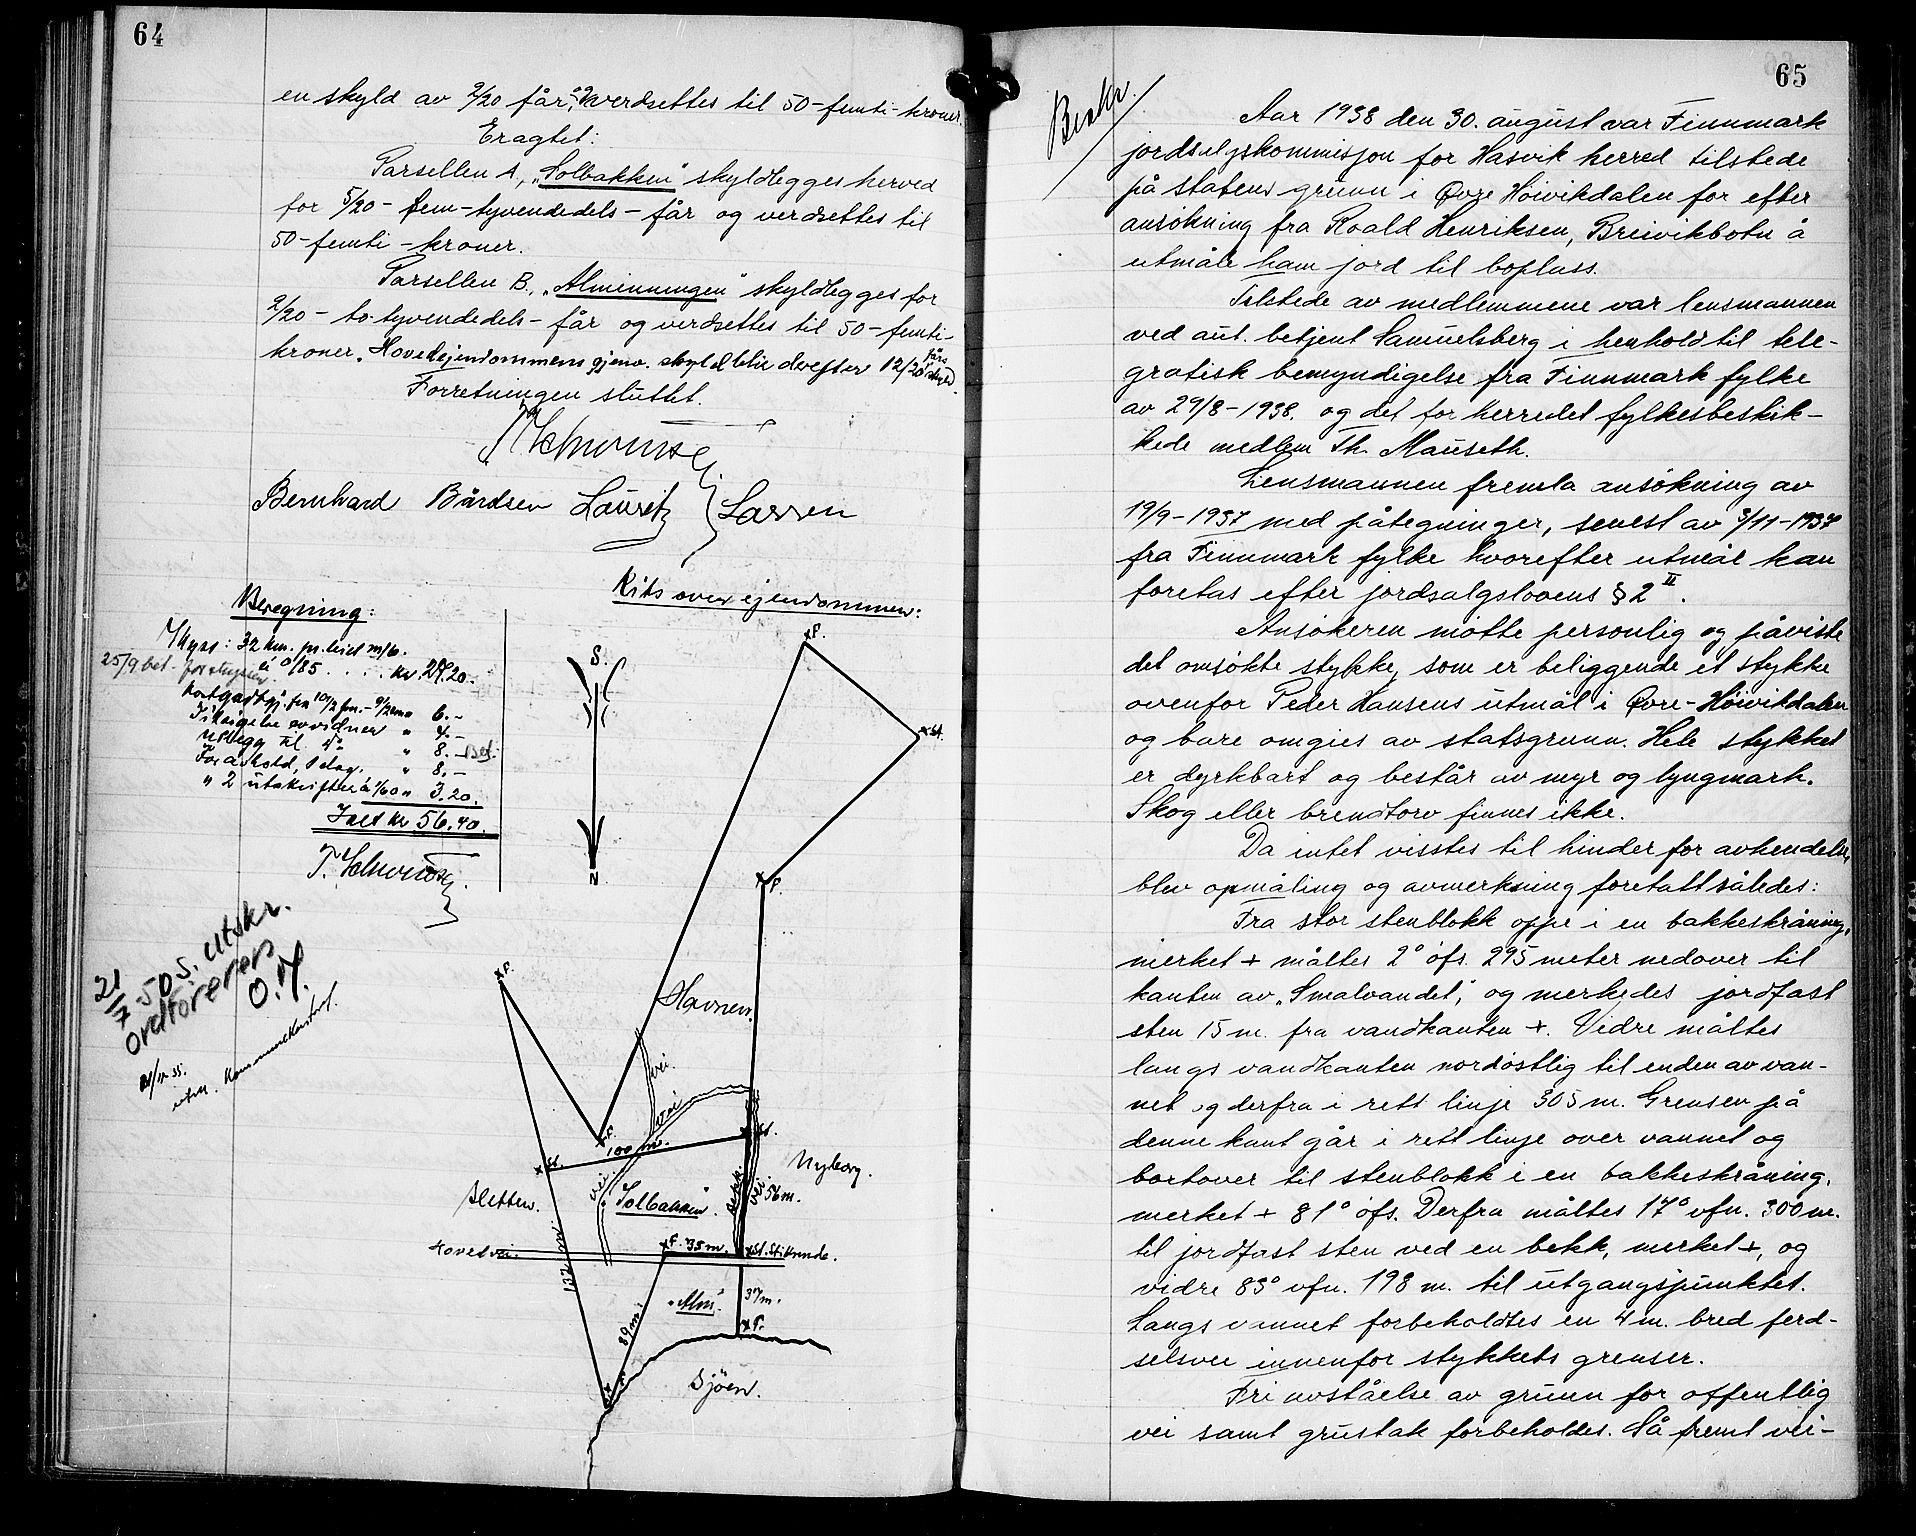 64
en skyld av 2/20 får, verdsettes til 50-femti-kroner.
Eragtet:
Parsellen A, "Solbakken" skyldlegges herved
for 5/20 - fem-tyvendedels - får og verdsettes til
50-femti-kroner.
Parsellen B, "Alminningen" skyldlegges for
2/20 - to-tyvendedels - får og verdsettes til 50-femti-
kroner. Hovedejendommens gjenv. skyld blir derefter 12/20 fårs skyld.
Forretningen sluttet.
Bernhard Bårdsen Lauritz Larsen
Beregning:
1/ Skyss: 32 km. pr. leid m/b.
à 0/85 . . . . kr. 27.20.
25/9 bet.
6.-
Tilsigelse av vidner " 4.-
" 8.-
" 8.-
" 2 utskrifter à 1/60 " 3.20.
Ialt kr 56.40.
21/7-50 S. utskr.
O.H.
Rits over ejendommen:
S.
N.
F.
St.
F.
F.
Havnen.
vei.
vei
F.
100 m.
St.
St.
Nyborg.
Sletten.
vei
"Solbakken".
Bekk.
vei
56 m.
Hovedvei.
F. 35 m.
St. Stikrende.
132 m.
89 m.
"Alm."
37 m.
F.
F.
Sjöen.
65
Aar 1938 den 30. august var Finnmark
jordsalgskommisjon for Hasvik herred tilstede
på statens grunn i Øvre Höivikdalen for efter
ansökning fra Roald Henriksen, Breivikbotn å
utmåle ham jord til boplass.
Tilstede av medlemmene var lensmannen
ved aut. betjent Samuelsberg i henhold til tele-
grafisk bemyndigelse fra Finnmark fylke
av 29/8-1938. og det for herredet fylkesbeskik-
kede medlem Th. Mauseth.
Lensmannen fremla ansökning av
19/9-1937 med påtegninger, senest av 3/11-1937
fra Finnmark fylke hvorefter utmål kan
foretas efter jordsalgslovens § 2 II.
Ansökeren mötte personlig og påviste
det omsökte stykke, som er beliggende et stykke
ovenfor Peder Hansens utmål i Øvre-Höivikdalen
og bare omgies av statsgrunn. Hele stykket
er dyrkbart og består av myr og lyngmark.
Skog eller brendtorv finnes ikke.
Da intet visstes til hinder for avhendelse,
blev opmåling og avmerkning foretatt således:
Fra stor stenblokk oppe i en bakkeskråning,
merket + måltes 2° öfs. 295 meter nedover til
kanten av "Smalvandet", og merkedes jordfast
sten 15 m. fra vandkanten +. Vidre måltes
langs vandkanten nordöstlig til enden av van-
net og derfra i rett linje 305 m. Grensen på
denne kant går i rett linje over vannet og
bortover til stenblokk i en bakkeskråning,
merket + 81° öfs. Derfra måltes 17° vfn. 300 m.
til jordfast sten ved en bekk, merket +, og
vidre 83° vfn. 198 m. til utgangspunktet.
Langs vannet forbeholdtes en 4 m. bred ferd-
selsvei innenfor stykkets grenser.
Fri avståelse av grunn for offentlig
vei samt grustak forbeholdes. Så fremt vei-